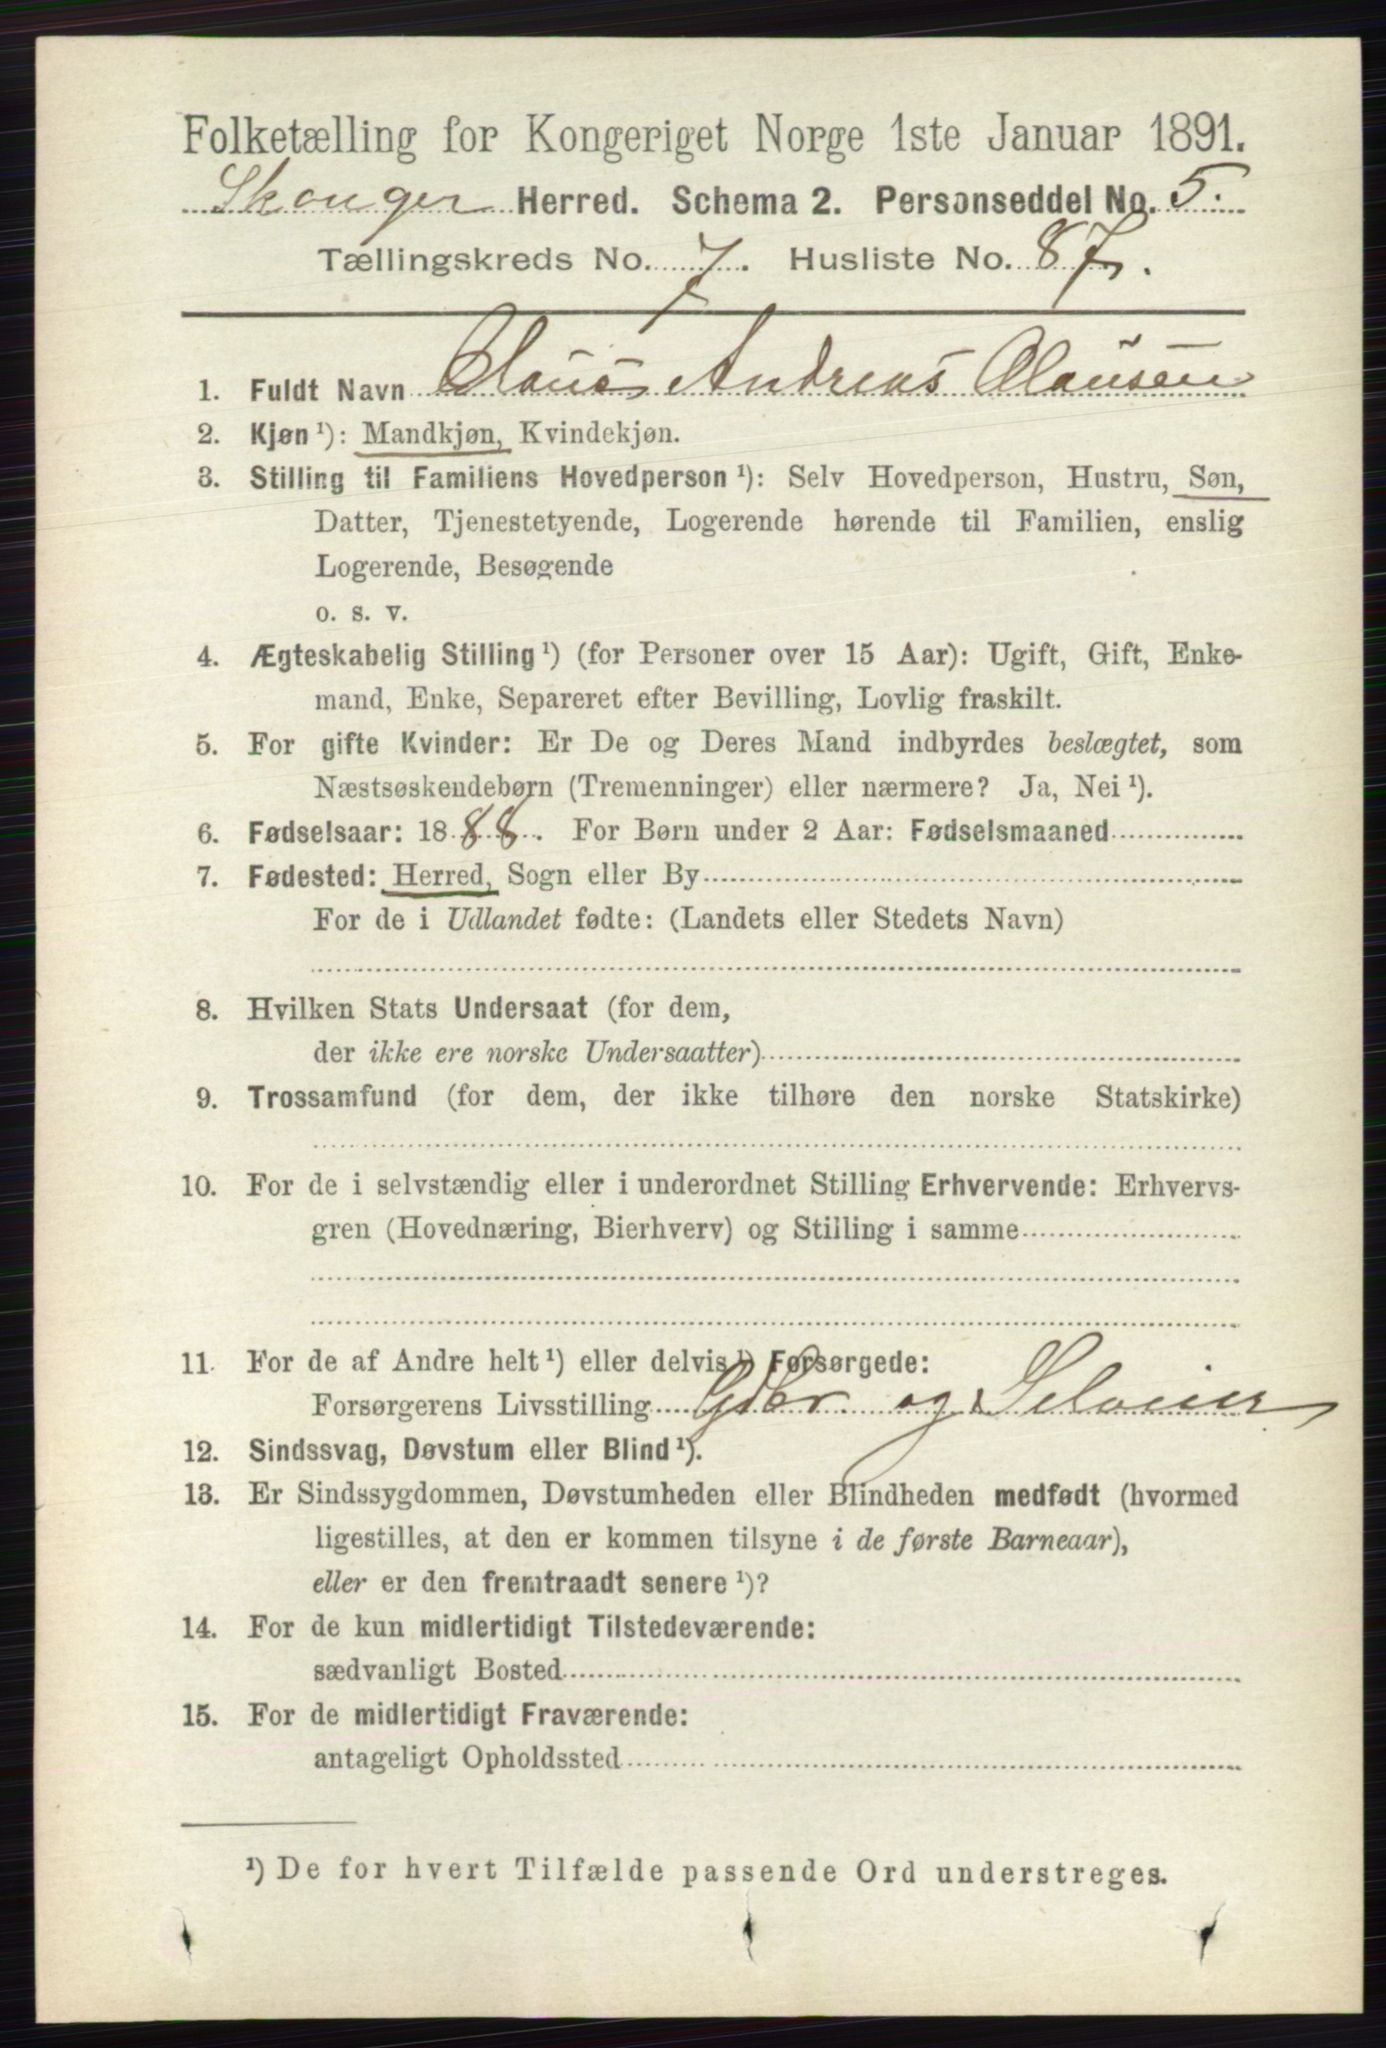 Folketælling for Kongeriget Norge 1ste Januar 1891.
Skouger Herred. Schema 2. Personseddel No. 5.
Tællingskreds No. 7. Husliste No. 87.
1. Fuldt Navn Claus Andreas Clausen
2. Kjøn ¹): Mandkjøn, Kvindekjøn.
3. Stilling til Familiens Hovedperson ¹): Selv Hovedperson, Hustru, Søn,
Datter, Tjenestetyende, Logerende hørende til Familien, enslig
Logerende, Besøgende
o. s. v.
4. Ægteskabelig Stilling ¹) (for Personer over 15 Aar): Ugift, Gift, Enke-
mand, Enke, Separeret efter Bevilling, Lovlig fraskilt.
5. For gifte Kvinder: Er De og Deres Mand indbyrdes beslægtet, som
Næstsøskendebørn (Tremenninger) eller nærmere? Ja, Nei ¹).
6. Fødselsaar: 1888. For Børn under 2 Aar: Fødselsmaaned
7. Fødested: Herred, Sogn eller By
For de i Udlandet fødte: (Landets eller Stedets Navn)
8. Hvilken Stats Undersaat (for dem,
der ikke ere norske Undersaatter)
9. Trossamfund (for dem, der ikke tilhøre den norske Statskirke)
10. For de i selvstændig eller i underordnet Stilling Erhvervende: Erhvervs-
gren (Hovednæring, Bierhverv) og Stilling i samme
11. For de af Andre helt ¹) eller delvis ¹) Forsørgede:
Forsørgerens Livsstilling Gbr. og Seloeier
12. Sindssvag, Døvstum eller Blind ¹).
13. Er Sindssygdommen, Døvstumheden eller Blindheden medfødt (hvormed
ligestilles, at den er kommen tilsyne i de første Barneaar),
eller er den fremtraadt senere ¹)?
14. For de kun midlertidigt Tilstedeværende:
sædvanligt Bosted
15. For de midlertidigt Fraværende:
antageligt Opholdssted
¹) De for hvert Tilfælde passende Ord understreges.